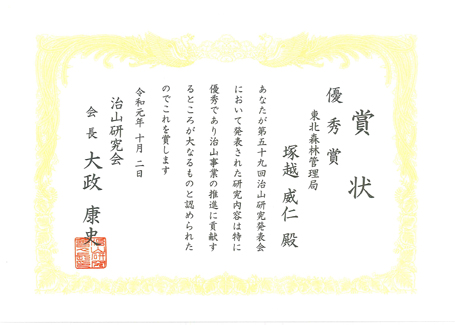 賞状
優秀賞
東北森林管理局
塚越威仁殿
あなたが第五十九回治山研究発表会
において発表された研究内容は特に
優秀であり治山事業の推進に貢献す
るところが大なるものと認められた
のでこれを賞します
令和元年十月二日
治山研究会
会長大政康史